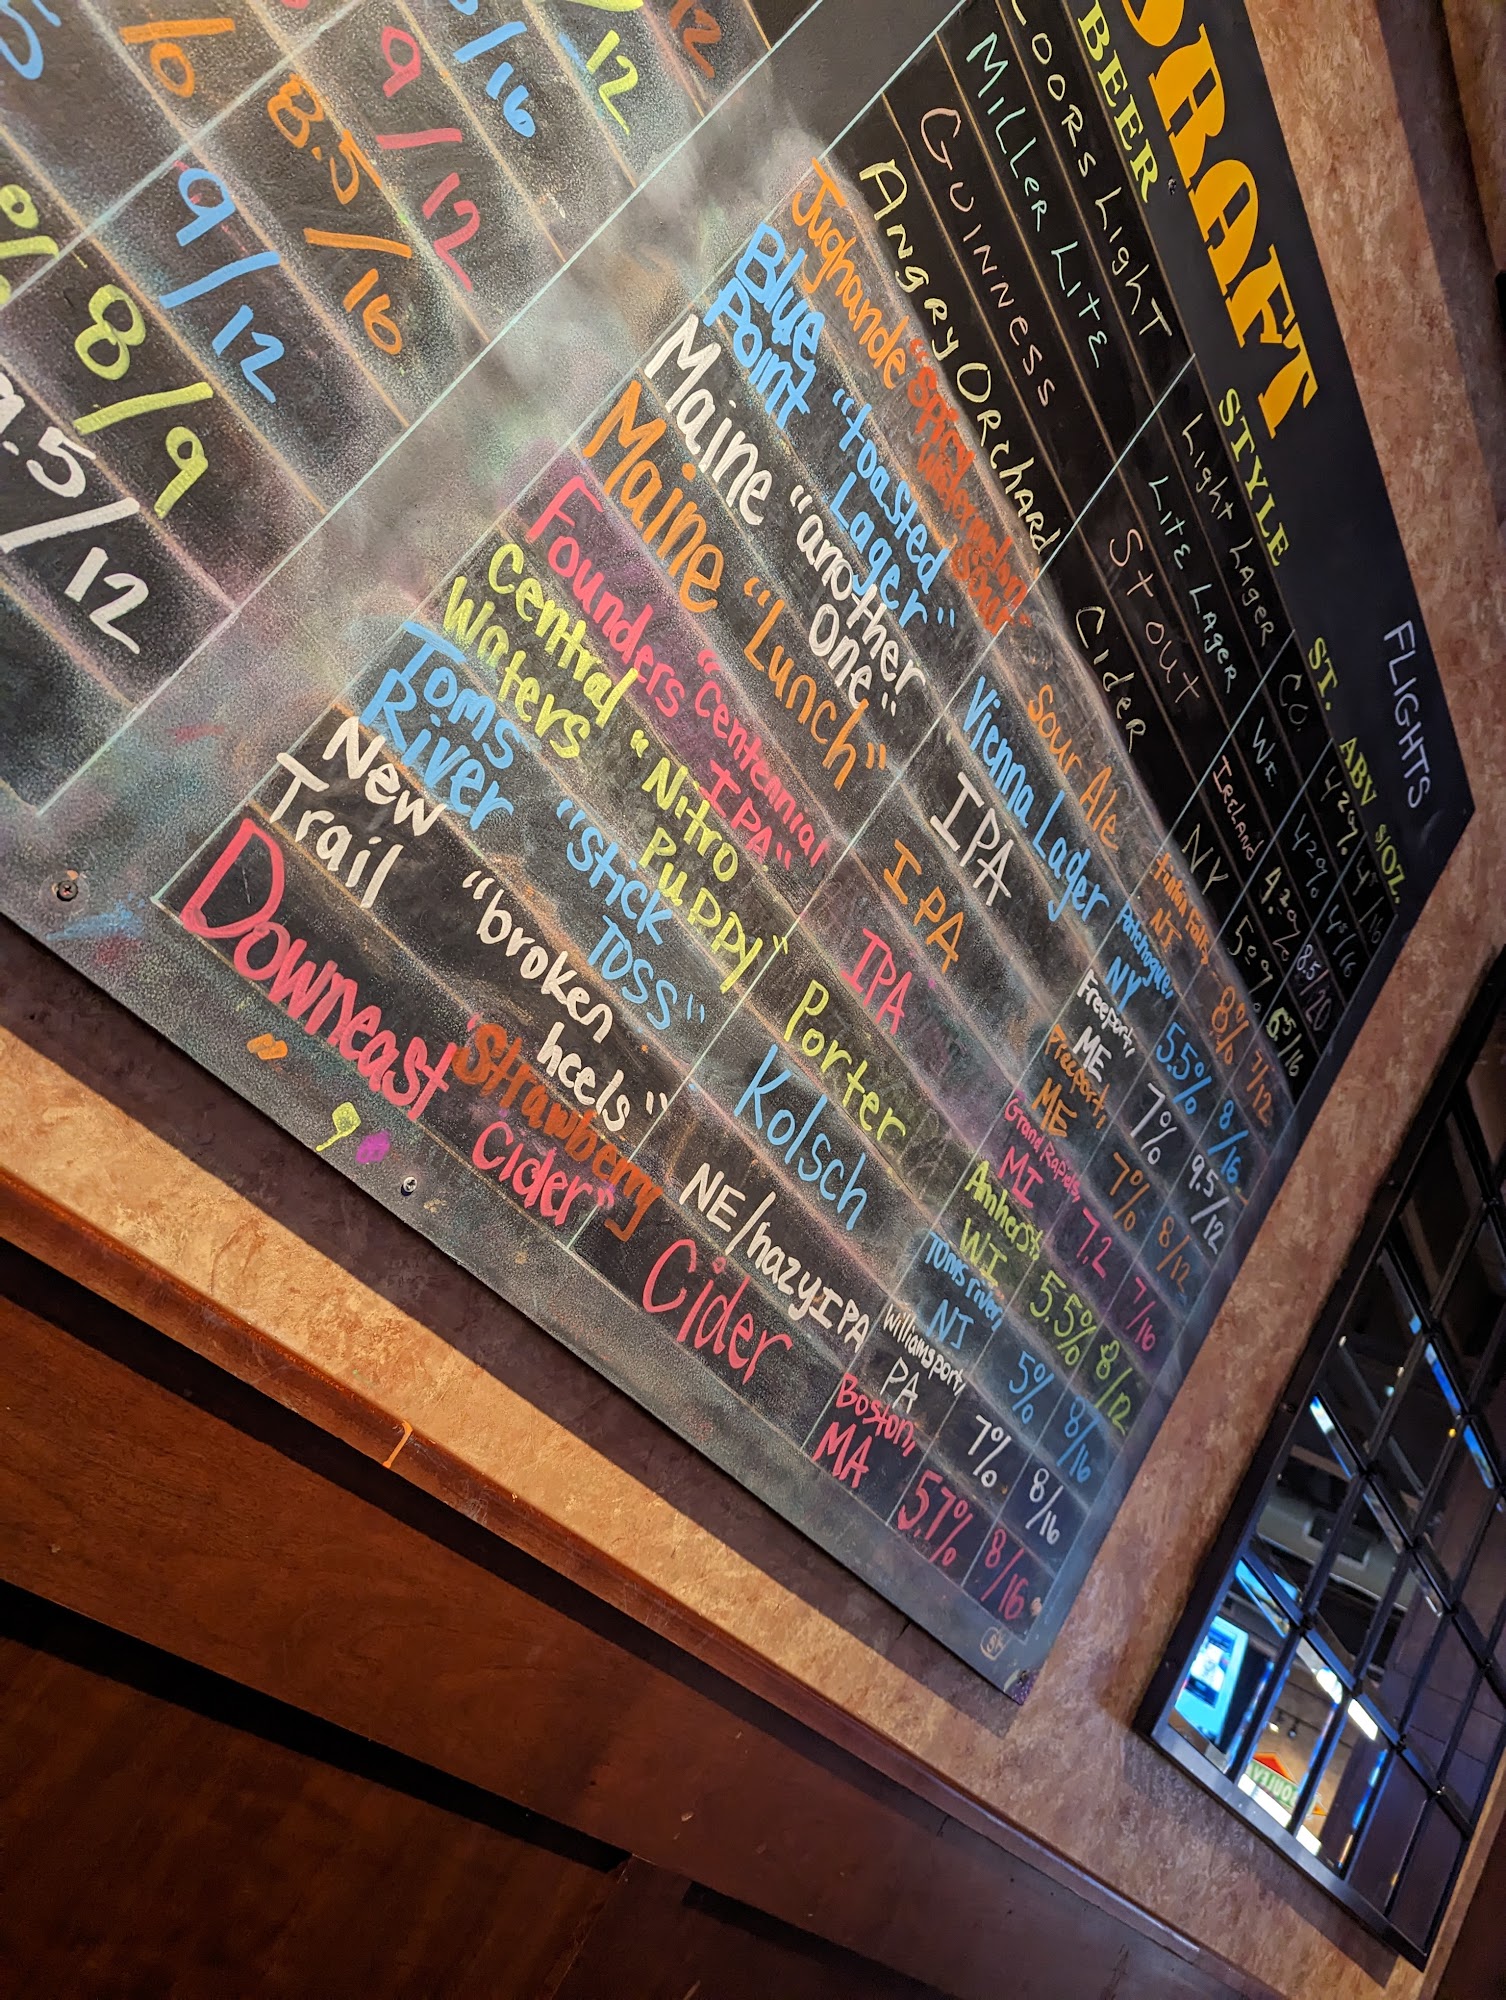 DRAFT
FLIGHTS
BEER STYLE ST. ABV $/OZ.
COORS Light Light LAGER CO. 4.2%
MiLLeR LITE LITE LAGER WI. 4.2%
GUINNESS Stout IReLAND 4.2% 8.5/20
ANgRy ORchARd Cider NY 6.5/16
Jughande "Spicy Watermelon Sour" Sour Ale NJ 8% 7/12
Blue Point "toasted Lager" Vienna Lager Patchogue, NY 5.5% 8/16
Maine "another One" IPA Freeport, ME 7% 9.5/12
Maine "Lunch" IPA Freeport, ME 7% 8/12
Founders "Centennial IPA" IPA Grand Rapids, MI 7.2 7/16
Central Waters "Nitro Puppy" Porter Amherst, WI 5.5% 8/12
Toms River "Stick Toss" Kolsch Toms river, NJ 5% 8/16
New Trail "broken heels" NE/hazy IPA Williamsport, PA 7% 8/16
Downeast "Strawberry Cider" Cider Boston, MA 5.7% 8/16
9/12
8.5/16
9/12
8/9
9.5/12